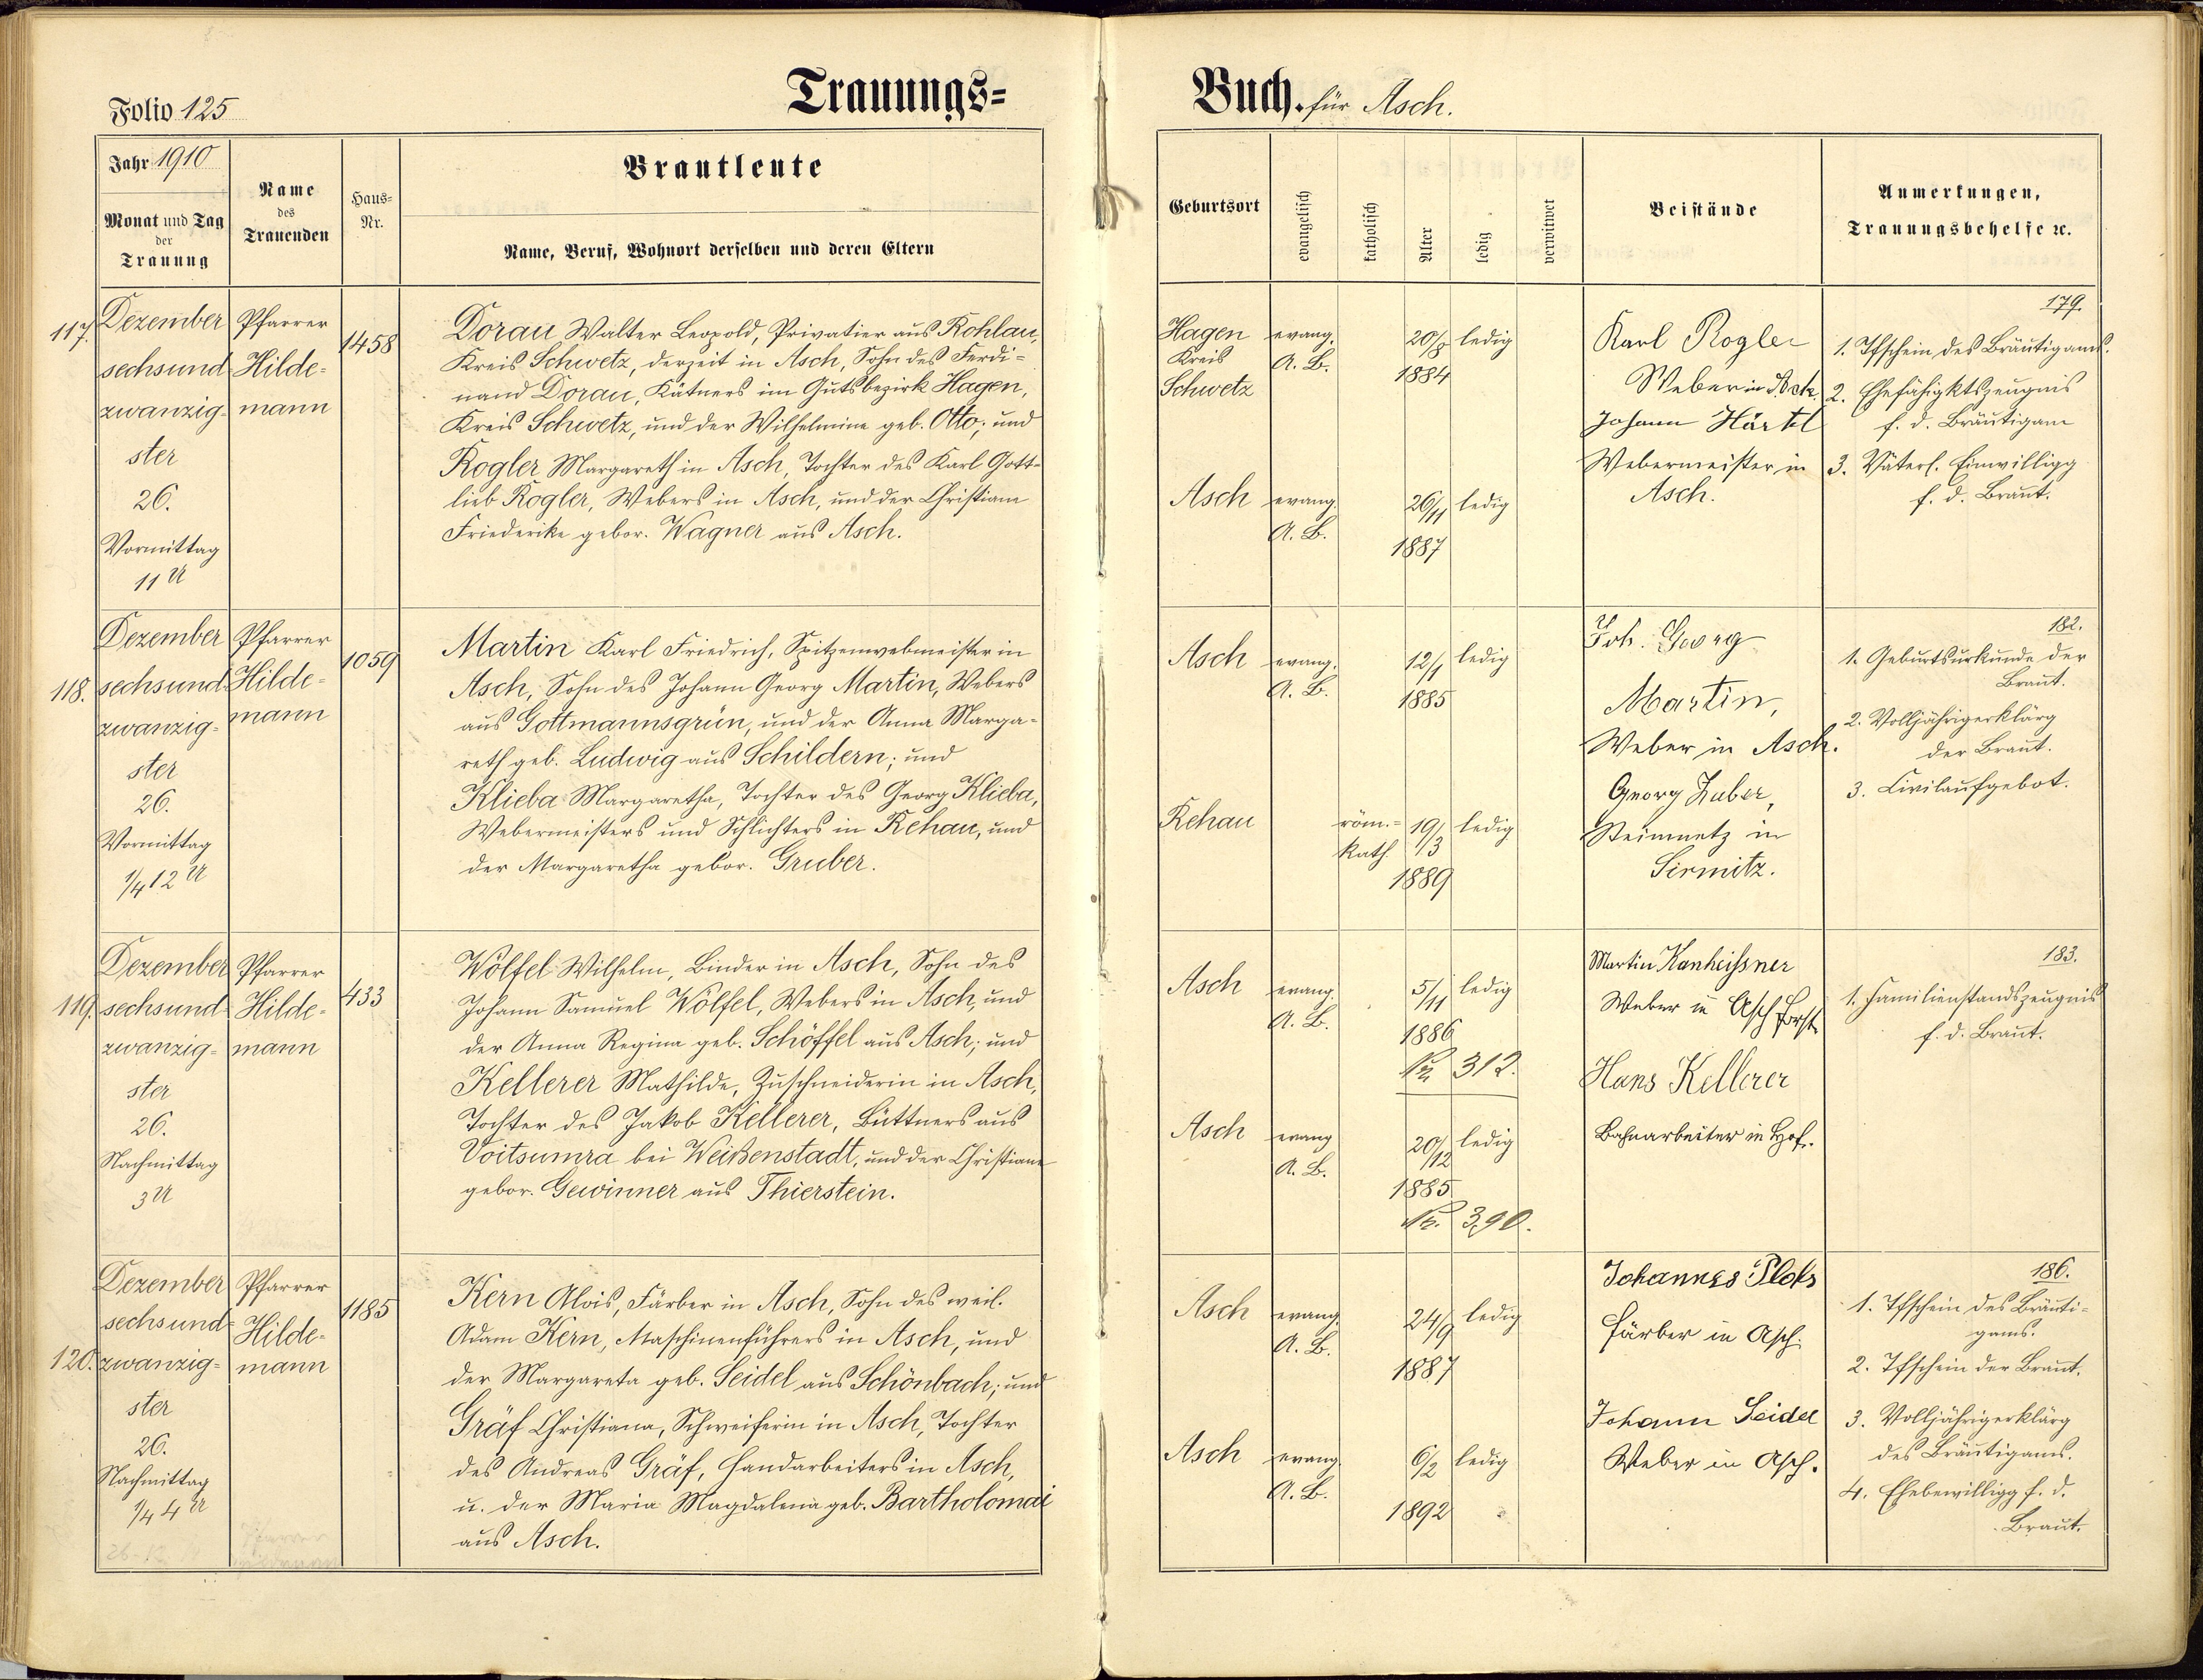 Folio 125
Trauungs=
Jahr 1910
Monat und Tag
der
Trauung
Name
des
Trauenden
Haus=
Nr.
Brautleute
Name, Beruf, Wohnort derselben und deren Eltern
117.
Dezember
sechsund
zwanzig=
ster
26.
Vormittag
11 U
Pfarrer
Hilde=
mann
1458
Dorau Walter Leopold, Privatier aus Rohlau,
Kreis Schwetz, derzeit in Asch, Sohn des Ferdi=
nand Dorau, Kätners im Gutsbezirk Hagen,
Kreis Schwetz, und der Wilhelmine geb. Otto; und
Rogler Margareth in Asch, Tochter des Karl Gott=
lieb Rogler, Webers in Asch, und der Christiane
Friederike gebor. Wagner aus Asch.
118.
Dezember
sechsund=
zwanzig=
ster
26.
Vormittag
1/4 12 U
Pfarrer
Hilde=
mann
1059
Martin Karl Friedrich, Spitzenwebmeister in
Asch, Sohn des Johann Georg Martin, Webers
aus Gottmannsgrün, und der Anna Marga=
reth geb. Ludwig aus Schildern; und
Klieba Margaretha, Tochter des Georg Klieba,
Webermeisters und Schlichters in Rehau, und
der Margaretha gebor. Gruber.
119.
Dezember
sechsund=
zwanzig=
ster
26.
Nachmittag
3 U
Pfarrer
Hilde=
mann
433
Wölfel Wilhelm, Binder in Asch, Sohn des
Johann Samuel Wölfel, Webers in Asch, und
der Anna Regina geb. Schöffel aus Asch; und
Kellerer Mathilde, Zuschneiderin in Asch,
Tochter des Jakob Kellerer, Büttners aus
Voitsumra bei Weißenstadt, und der Christiane
gebor. Gewinner aus Thierstein.
120.
Dezember
sechsund=
zwanzig=
ster
26.
Nachmittag
1/4 4 U
Pfarrer
Hilde=
mann
1185
Kern Alois, Färber in Asch, Sohn des weil.
Adam Kern, Maschinenführers in Asch, und
der Margareta geb. Seidel aus Schönbach; und
Gräf Christiana, Schweiferin in Asch, Tochter
des Andreas Gräf, Handarbeiters in Asch,
u. der Maria Magdalena geb. Bartholomai
aus Asch.
Buch. für Asch.
Geburtsort
evangelisch
katholisch
Alter
ledig
verwitwet
Beistände
Anmerkungen,
Trauungsbehelfe ꝛc.
Hagen
Kreis
Schwetz
evang.
A. B.
20/8
1884
ledig
Asch
evang.
A. B.
26/11
1887
ledig
Karl Rogler
Weber in Asch.
Johann Härtl
Webermeister in
Asch.
179.
1. Tfschein des Bräutigams.
2. Ehefähigktszeugnis
f. d. Bräutigam
3. Väterl. Einwilligg
f. d. Braut.
Asch
evang.
A. B.
12/1
1885
ledig
Rehau
röm.=
kath.
19/3
1889
ledig
Joh. Georg
Martin,
Weber in Asch.
Georg Huber,
Steinmetz in
Sirmitz.
182.
1. Geburtsurkunde der
Braut.
2. Volljährigerklärg
der Braut.
3. Civilaufgebot.
Asch
evang.
A. B.
5/11
1886
Nr. 312.
ledig
Asch
evang
A. B.
20/12
1885
Nr. 390.
ledig
Martin Kanheißner
Weber in Asch Forst
Hans Kellerer
Bahnarbeiter in Hof.
183.
1. Familienstandszeugnis
f. d. Braut.
Asch
evang.
A. B.
24/9
1887
ledig
Asch
evang.
A. B.
6/2
1892
ledig
Johannes Ploß
Färber in Asch.
Johann Seidel
Weber in Asch.
186.
1. Tfschein des Bräuti=
gams.
2. Tfschein der Braut.
3. Volljährigerklärg
des Bräutigams.
4. Ehebewilligg f. d.
Braut.